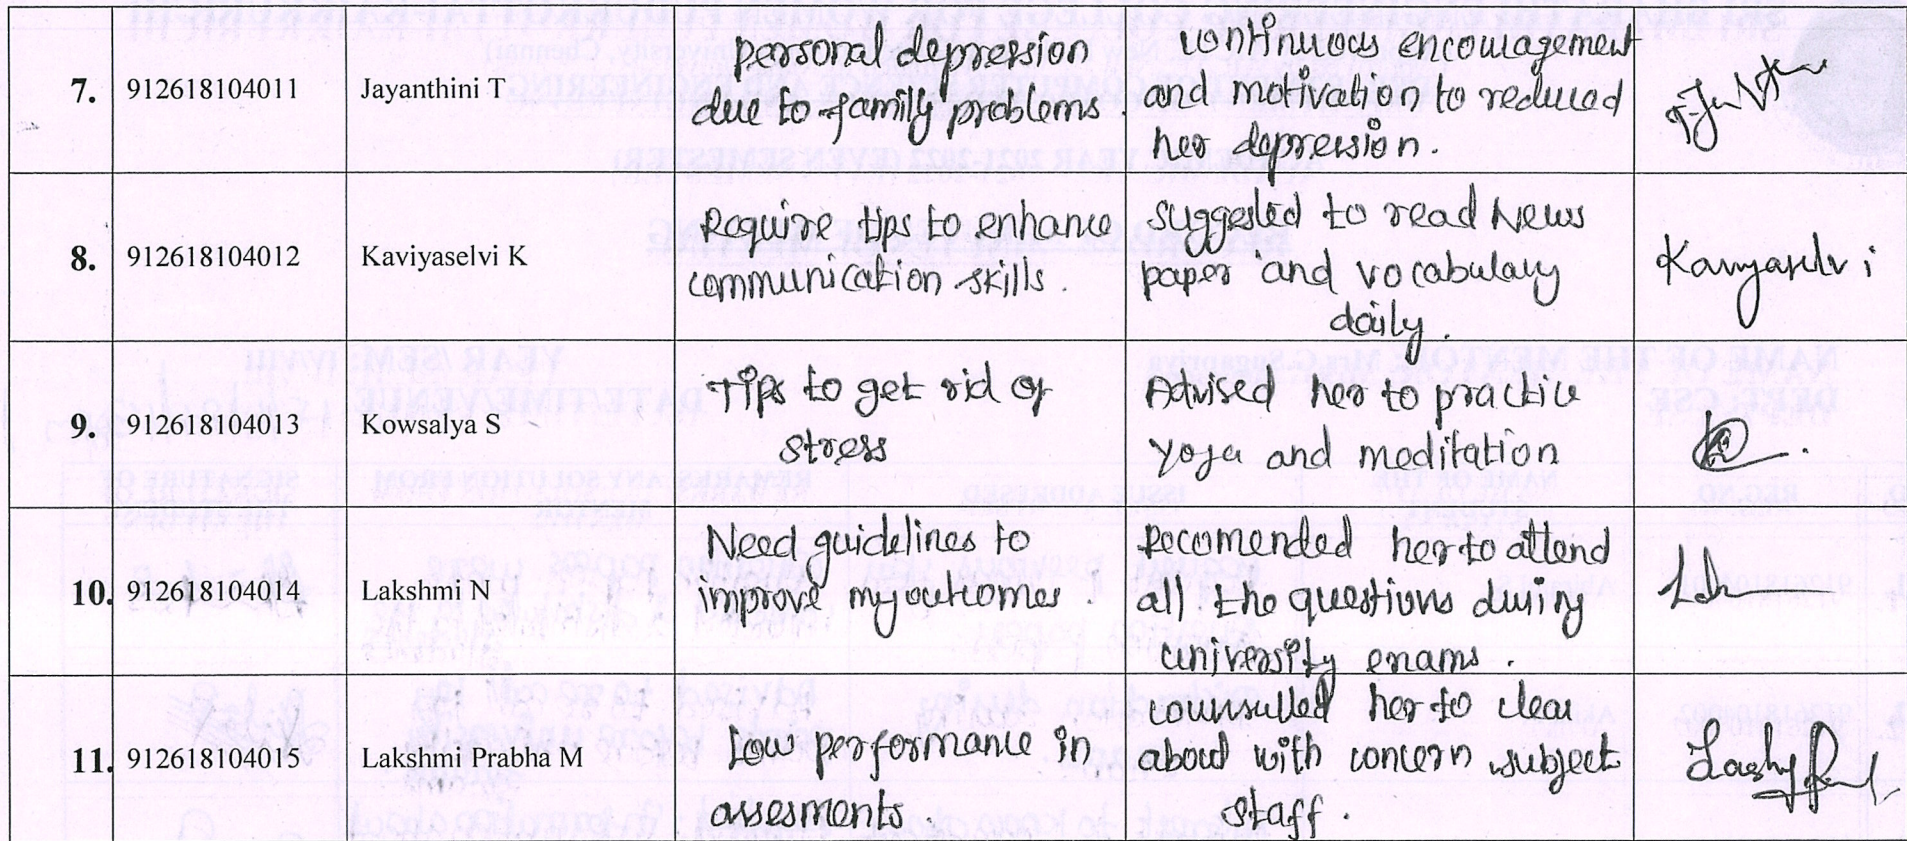 7. 912618104011 Jayanthini T
personal depression
due to family problems.
continuous encouragement
and motivation to reduced
her depression.
8. 912618104012 Kaviyaselvi K
Require tips to enhance
communication skills.
suggested to read News
paper and vocabulary
daily.
Kaviyaselvi
9. 912618104013 Kowsalya S
Tips to get rid of
stress
Advised her to practice
yoga and meditation
10. 912618104014 Lakshmi N
Need guidelines to
improve my outcomes.
Recomended her to attend
all the questions during
university exams.
11. 912618104015 Lakshmi Prabha M
Low performance in
assesments.
counselled her to clear
about with concern subject
staff.